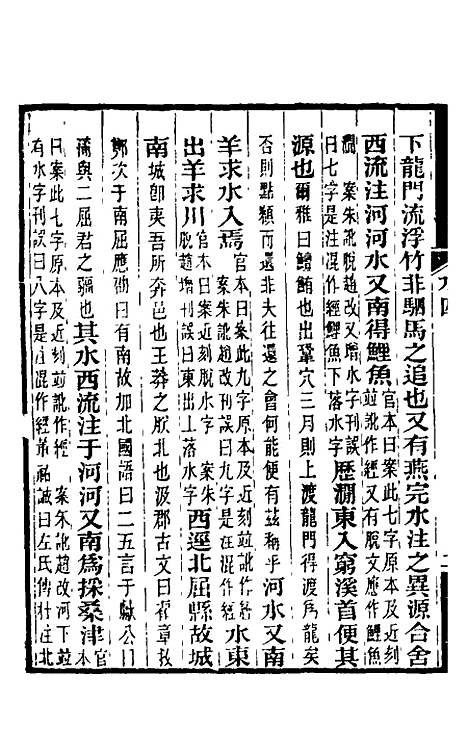 下龍門流浮竹非駟馬之追也又有燕完水注之異源合舍
西流注河河水又南得鯉魚官本曰案此七字原本及近刻並訛作經又有脫文應作鯉魚
澗 案朱訛脫趙改又增水字刊誤曰七字是注混作經鯉魚下落水字歷澗東入窮溪首便其
源也爾雅曰鱣鮪也出鞏穴三月則上渡龍門得渡爲龍矣
否則點額而還非夫往還之會何能便有茲稱乎河水又南
羊求水入焉官本曰案此九字原本及近刻並訛作經 案朱訛趙改刊誤曰九字是注混作經水東
出羊求川官本曰案近刻脫水字 案朱脫趙增刊誤曰東出上落水字西逕北屈縣故城
南城卽夷吾所奔邑也王莽之朕北也汲郡古文曰翟章救
鄭次于南屈應劭曰有南故加北國語曰二五言于獻公曰
蒲與二屈君之疆也其水西流注于河河又南爲採桑津官本
曰案此七字原本及近刻並訛作經 案朱訛趙改河下並
有水字刊誤曰八字是注混作經 誠曰左氏傳杜注北